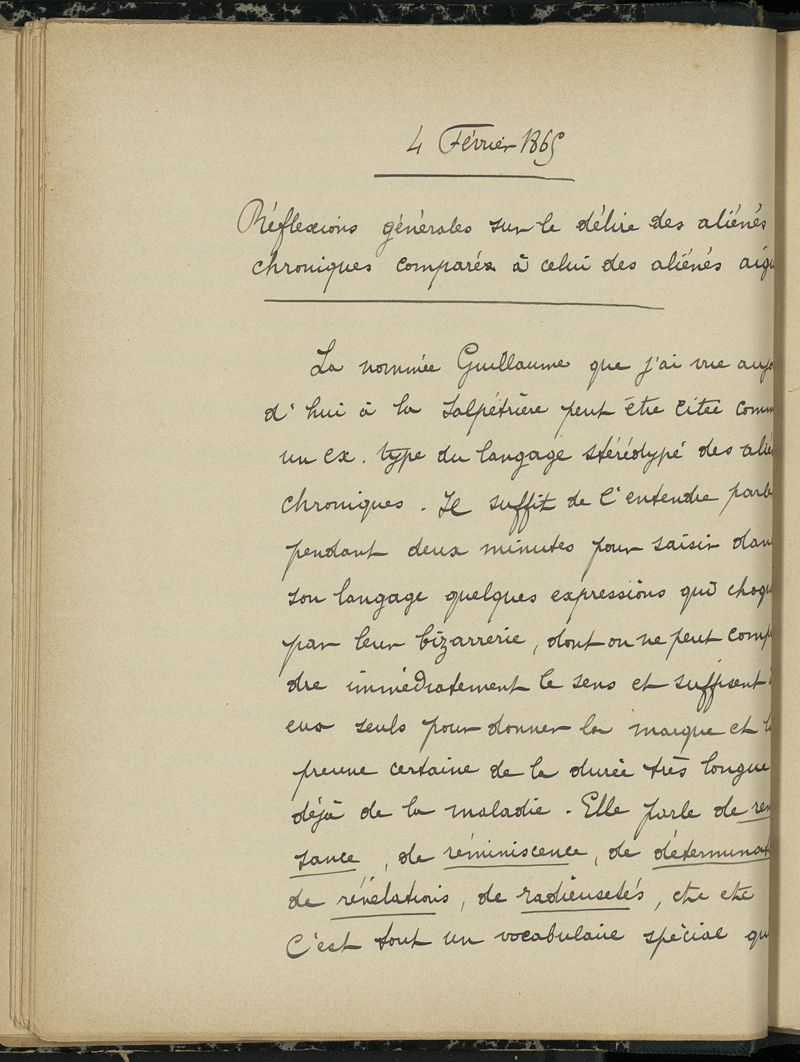 4 Février 1865
Réflexions générales sur le délire des aliénés
chroniques comparés à celui des aliénés aigu
La nommée Guillaume que j'ai vue aujo
d'hui à la Salpétrière peut être citée comm
un ex. type du langage stéréotypé des alié
chroniques. Il suffit de l'entendre parle
pendant deux minutes pour saisir dan
son langage quelques expressions qui choqu
par leur bizarrerie, dont on ne peut comp
dre immédiatement le sens et suffisent
eux seuls pour donner la marque et l
preuve certaine de la durée très longue
déjà de la maladie. Elle parle de ren
sance, de réminiscence, de déterminat
de révélations, de radieusetés, etc etc
C'est tout un vocabulaire spécial qu